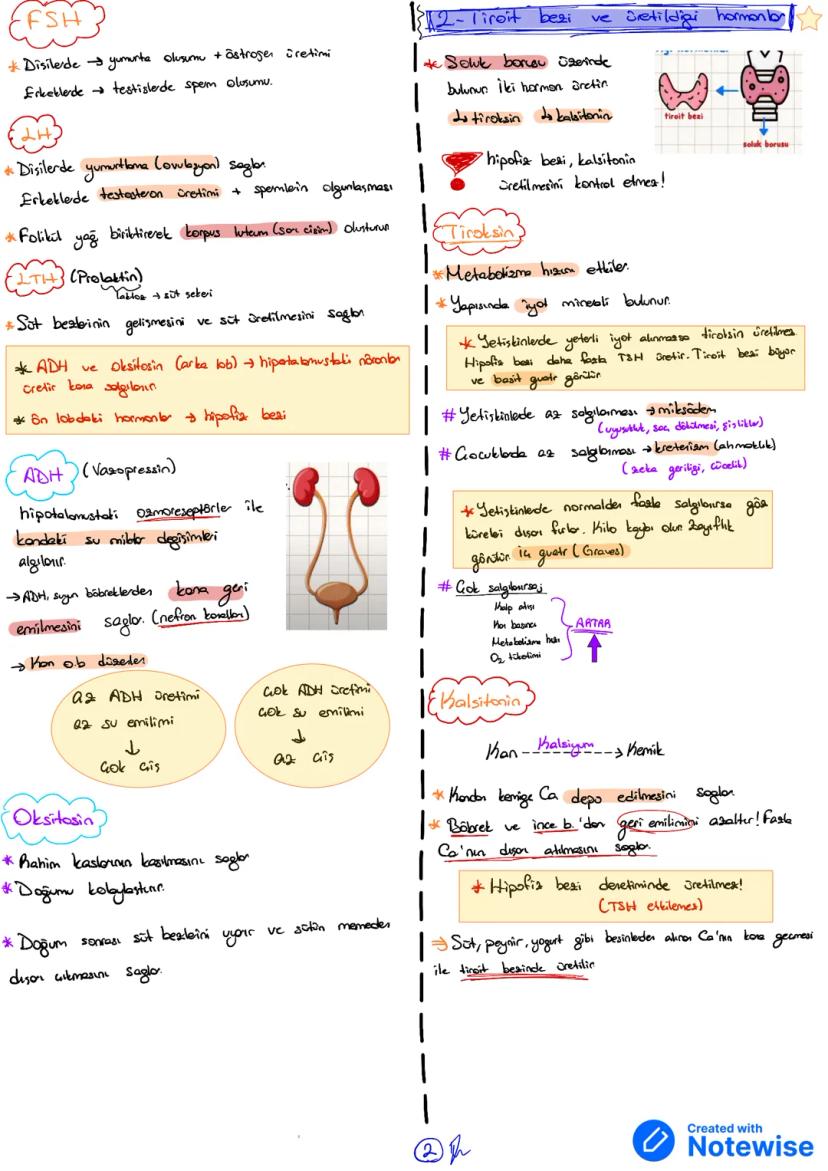 FSH
* Dişilerde → yumurta oluşumu + östrojen üretimi
Erkeklerde → testislerde sperm oluşumu.
LH
* Dişilerde yumurtlama (ovulasyon) sağlar.
Erkeklerde testosteron üretimi + spermlerin olgunlaşması
* Folikül yağ biriktirerek korpus luteum (sarı cisim) oluşturur
LTH (Prolaktin)
laktoz → süt şekeri
* Süt bezlerinin gelişmesini ve süt üretilmesini sağlar
* ADH ve Oksitosin (arka lob) → hipotalamustaki nöronlar
üretir kana salgılanır.
* Ön lobdaki hormonlar → hipofiz bezi
ADH (Vazopressin)
hipotalamustaki ozmoreseptörler ile
kandaki su miktar değişimleri
algılanır.
→ ADH, suyun böbreklerden kana geri
emilmesini sağlar. (nefron kanalları)
→ Kan o.b düzenler
az ADH üretimi
az su emilimi
↓
çok çiş
çok ADH üretimi
çok su emilimi
↓
az çiş
Oksitosin
* Rahim kaslarının kasılmasını sağlar
* Doğumu kolaylaştırır.
* Doğum sonrası süt bezlerini uyarır ve sütün memeden
dışarı çıkmasını sağlar.
2-Tiroit bezi ve ürettiği hormonlar
* Soluk borusu üzerinde
bulunur. İki hormon üretir.
↳ tiroksin ↳ kalsitonin
tiroit bezi
soluk borusu
hipofiz bezi, kalsitonin
üretilmesini kontrol etmez!
Tiroksin
* Metabolizma hızını etkiler.
* Yapısında iyot minerali bulunur.
* Yetişkinlerde yeterli iyot alınmazsa tiroksin üretilmez
Hipofiz bezi daha fazla TSH üretir. Tiroit bezi büyür
ve basit guatr görülür
# Yetişkinlerde az salgılanması → miksödem
(uyuşukluk, saç dökülmesi, şişlikler)
# Çocuklarda az salgılanması → kreterizm (ahmaklık)
(zeka geriliği, cücelik)
* Yetişkinlerde normalden fazla salgılanırsa göz
küreleri dışarı fırlar. Kilo kaybı olur. Zayıflık
görülür. iç guatr (Graves)
# Çok salgılanırsa;
Kalp atışı
Kan basıncı
Metabolizma hızı
O₂ tüketimi
ARTAR
Kalsitonin
Kan ---Kalsiyum---→ Kemik
* Kandan kemiğe Ca depo edilmesini sağlar.
* Böbrek ve ince b.'den geri emilimini azaltır! Fazla
Ca'nın dışarı atılmasını sağlar.
* Hipofiz bezi denetiminde üretilmez!
(TSH etkilemez)
⇒ Süt, peynir, yoğurt gibi besinlerden alınan Ca'nın kana geçmesi
ile tiroit bezinde üretilir
2
Created with
Notewise